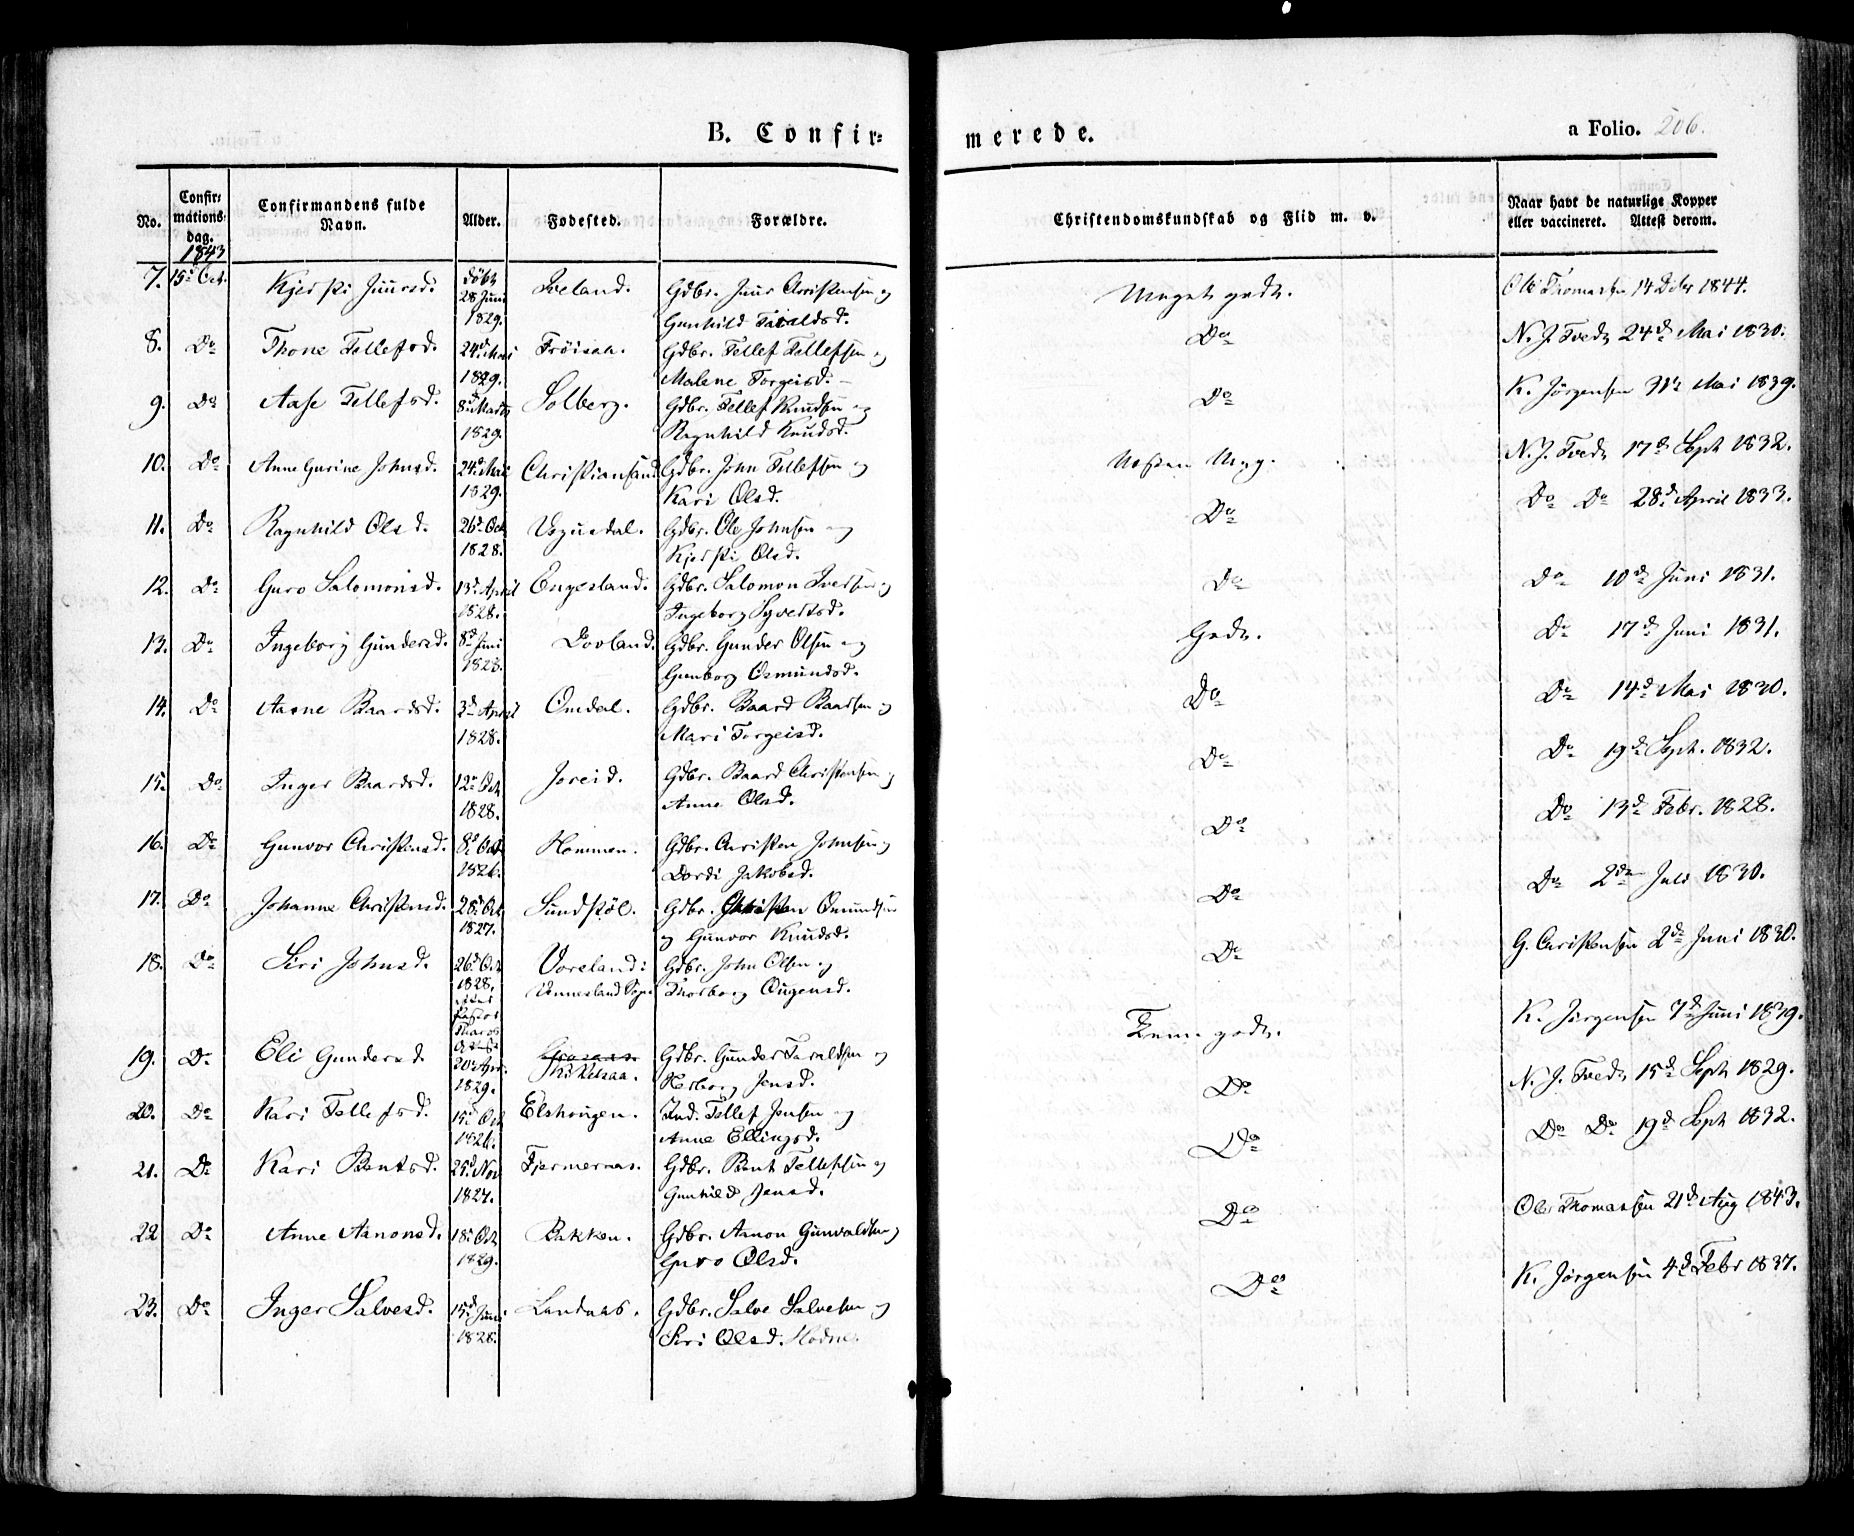 B. Confir-
merede.
a Folio. 206.
No. Confirmations dag. Confirmandens fulde Navn. Alder. Fødested. Forældre. Christendomskundskab og Flid m. v. Naar havt de naturlige Kopper eller vaccineret. Attest derom.
1843
7. 15d Oct. Kjersti Juursd. døbt 28 Juni 1829. Iveland. Gdbr. Juur Christensen og Gunhild Taraldsd. Meget godt. Ole Thomassen 14 Dcbr 1844.
8. Do Thone Tellefsd. 24d Mai 1829. Frøisaa. Gdbr. Tellef Tellefsen og Malene Torgeisd. Do N. J. Tvedt 24d Mai 1830.
9. Do Aase Tellefsd. 8d Marts 1829. Solberg. Gdbr. Tellef Knudsen og Ragnhild Knudsd. Do K. Jørgensen Mai 1839.
10. Do Anne Gurine Johnsd. 24d Mai 1829. Christiansand. Gdbr. John Tellefsen og Kari Olsd. Næsten Meg. N. J. Tvedt 17d Sept 1832.
11. Do Ragnhild Olsd. 26d Oct 1828. Gdbr. Ole Johnsen og Kjersti Olsd. Do Do Do 28d April 1833.
12. Do Guro Salomonsd. 13d April 1828. Engesland. Gdbr. Salomon Iversen og Ingeborg Syvertsd. Do Do 10d Juni 1831.
13. Do Ingeborg Gundersd. 8d Juni 1828. Dovland. Gdbr. Gunder Olsen og Gunborg Osmundsd. Godt. Do 17d Juni 1831.
14. Do Aasne Baardsd. 3d April 1828. Omdal. Gdbr. Baard Baardsen og Mari Torgeisd. Do Do 14d Mai 1830.
15. Do Inger Baardsd. 12d Oct 1828. Joreid. Gdbr. Baard Christensen og Anne Olsd. Do Do 19d Sept. 1832.
16. Do Gunvor Christensd. 8d Oct 1826. Hommen. Gdbr. Christen Johnsen og Dordi Jakobsd. Do Do 13d Febr. 1828.
17. Do Johanne Christensd. 28d Oct 1827. Sundstøl. Gdbr. Christen Omundsen og Gunvor Knudsd. Do Do 2den Juli 1830.
18. Do Siri Johnsd. 26d Oct 1828. Voreland: Vennesland Sogn Gdbr. John Olsen og Thorborg Ougensd. Do G. Christensen 2d Juni 1830.
19. Do Eli Gundersd. 20 Apr. 1829. Gdbr. Gunder Taraldsen og Herborg Jensd. Temm. godt. K. Jørgensen 7d Juni 1839.
20. Do Kari Tellefsd. 15d Oct 1826. Elshougen. Ind. Tellef Jensen og Anne Ellingsd. Do N. J. Tvedt 15d Sept 1829.
21. Do Kari Bentsd. 25d Nov 1827. Fjermernæs. Gdbr. Bent Tellefsen og Gunhild Jensd. Do Do Do 19d Sept 1832.
22 Do Anne Aanonsd. 18d Oct 1829. Bakken. Gdbr. Aanon Gunvaldsen og Guro Olsd. Do Ole Thomassen 21d Aug 1843.
23. Do Inger Salvesd. 15d Juni 1828. Landaas. Gdbr. Salve Salvesen og Siri Olsd. Do K. Jørgensen 4d Febr 1837.